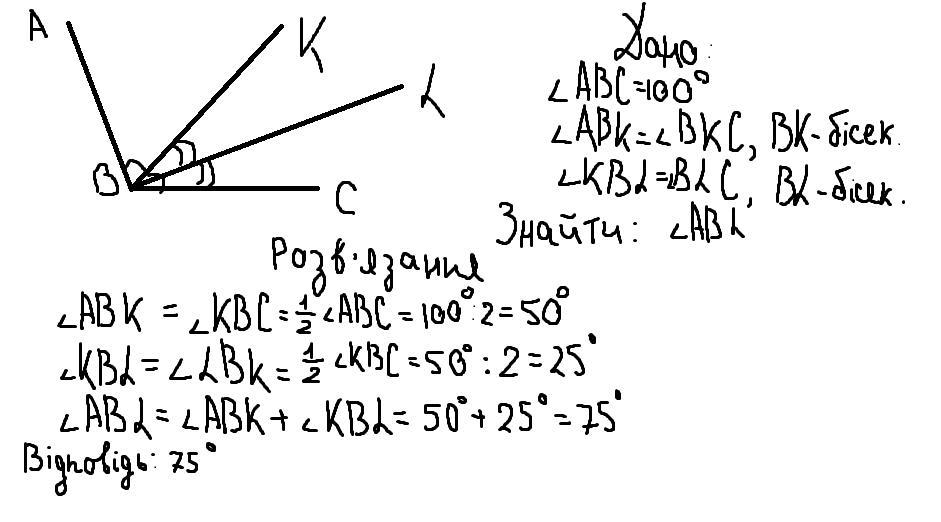 A
K
L
B
C
Дано:
∠ABC=100°
∠ABK=∠BKC, BK-бісек.
∠KBL=∠BLC, BL-бісек.
Знайти: ∠ABL
Розв'язання
∠ABK = ∠KBC = 1/2 ∠ABC = 100° : 2 = 50°
∠KBL = ∠LBK = 1/2 ∠KBC = 50° : 2 = 25°
∠ABL = ∠ABK + ∠KBL = 50° + 25° = 75°
Відповідь: 75°